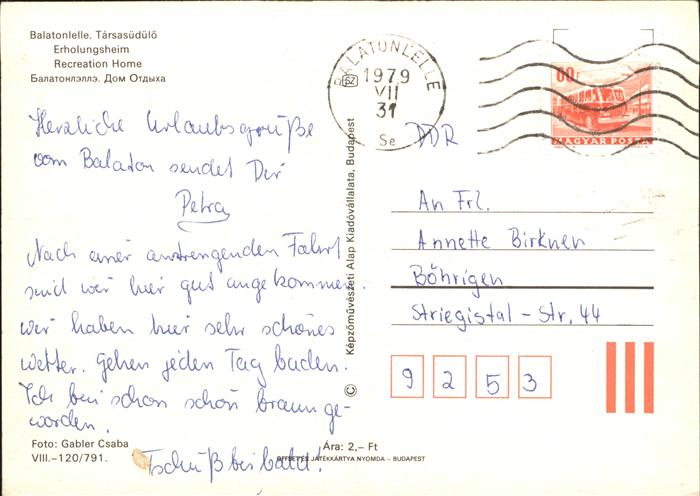 Balatonlelle. Társasüdülő
Erholungsheim
Recreation Home
Балатонлэллэ. Дом Отдыха
Herzliche Urlaubsgrüße
vom Balaton sendet Dir
Petra
Nach einer anstrengenden Fahrt
sind wir hier gut angekommen.
wir haben hier sehr schönes
wetter. Gehen jeden Tag baden.
Ich bin schon schön braun ge-
worden.
Tschüß bis bald!
Foto: Gabler Csaba
VIII.–120/791.
Ára: 2,– Ft
OFFSET ÉS JÁTÉKKÁRTYA NYOMDA – BUDAPEST
© Képzőművészeti Alap Kiadóvállalata, Budapest
BALATONLELLE
1979
VII
31
Se
60f
MAGYAR POSTA
DDR
An Frl.
Annette Birkner
Böhrigen
Striegistal - Str. 44
9 2 5 3